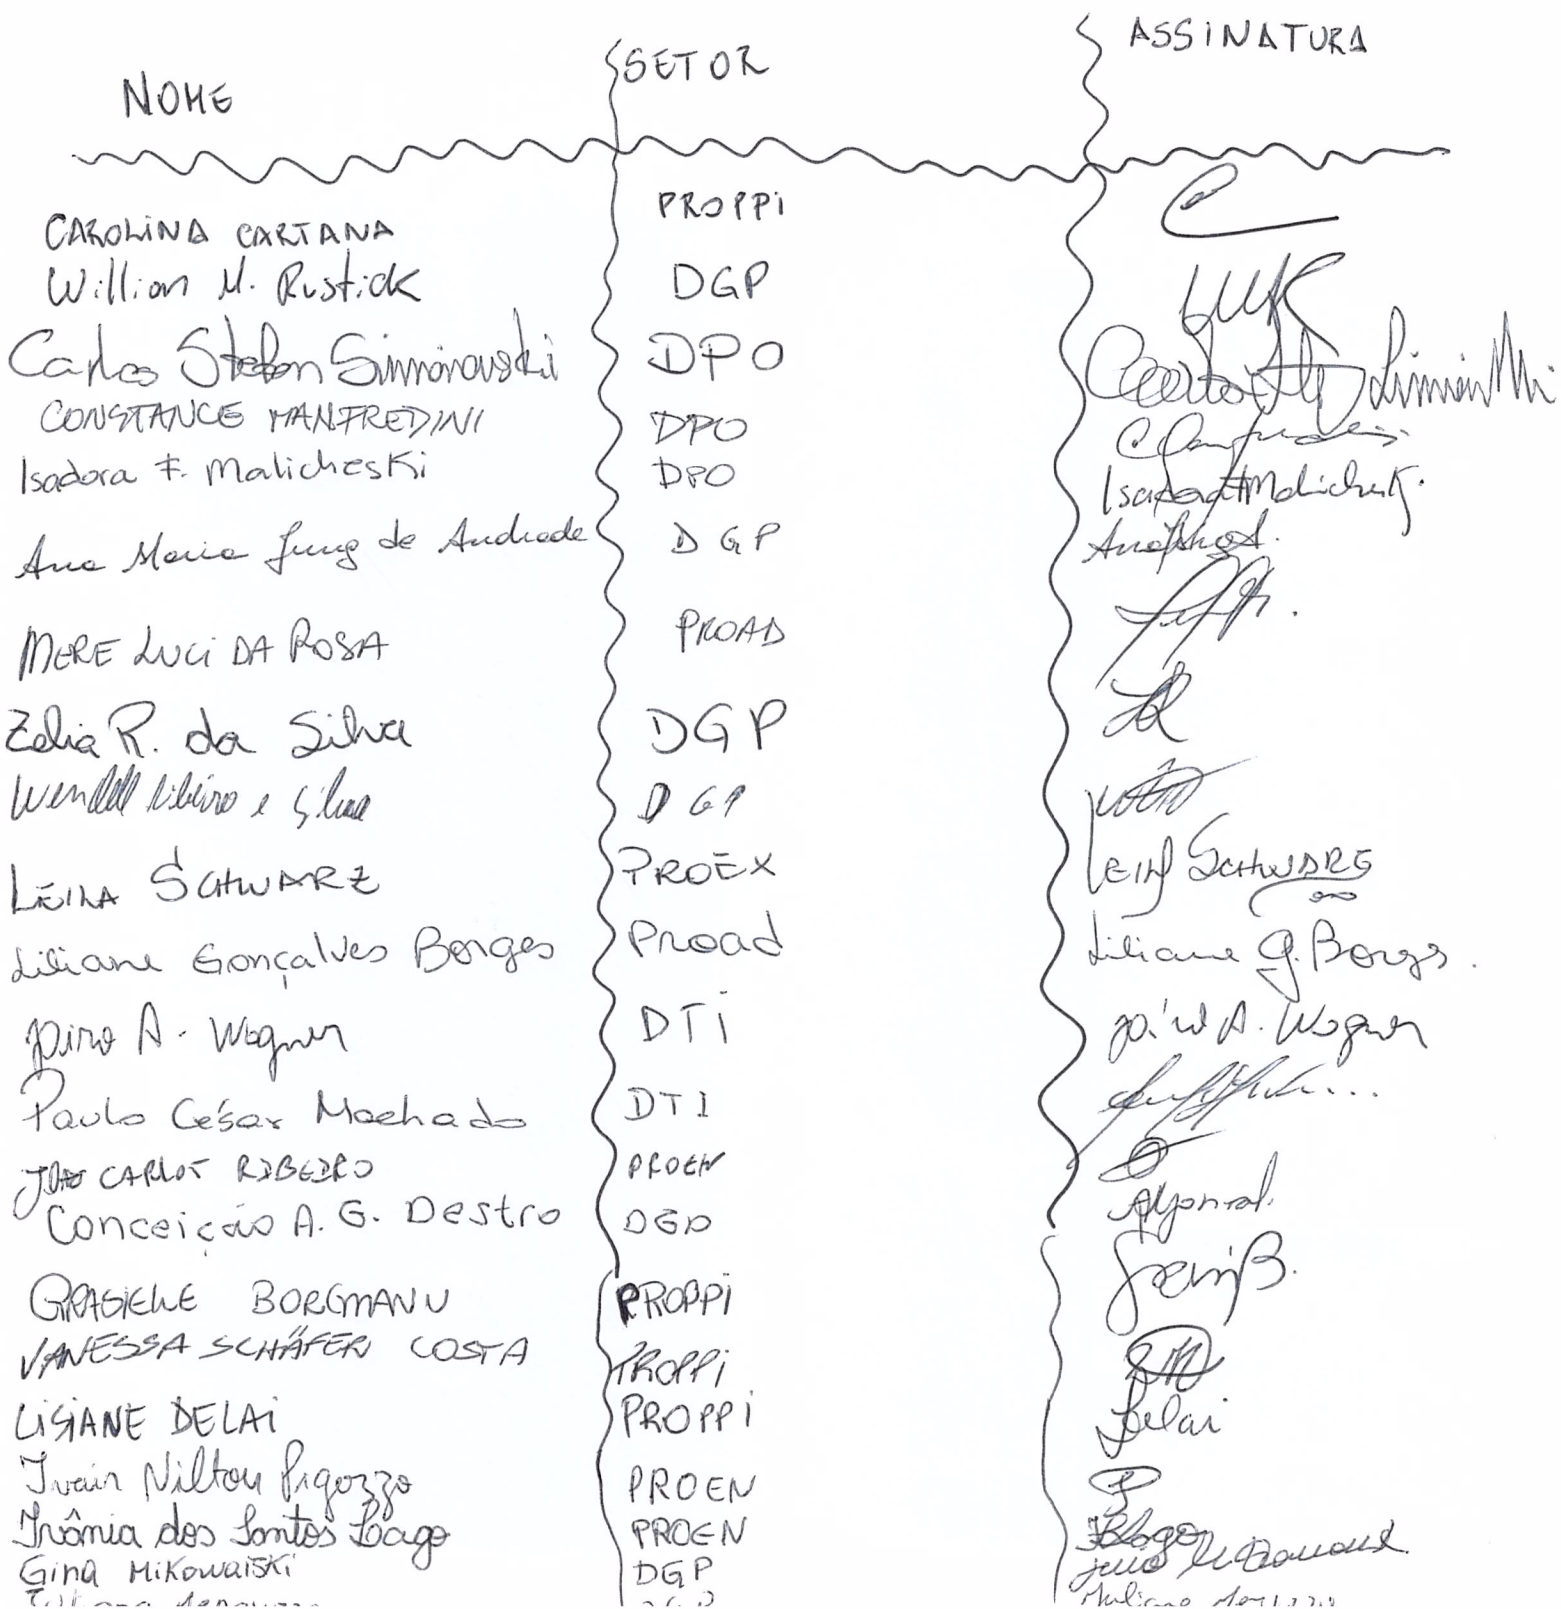 NOME SETOR ASSINATURA
CAROLINA CARTANA PROPPI
Willian M. Rustick DGP
Carlos Stefan Simionovski DPO
CONSTANCE MANFREDINI DPO
Isadora F. Malicheski DPO
Ana Maria Jung de Andrade DGP
MERE LUCI DA ROSA PROAD
Zelia R. da Silva DGP
Wendell Ribeiro e Silva DGP
LEILA SCHWARZ PROEX LEILA SCHWARZ
Liliane Gonçalves Borges Proad Liliane G. Borges.
Jairo A. Wagner DTI Jairo A. Wagner
Paulo César Machado DTI
JOÃO CARLOS RIBEIRO PROEN
Conceição A. G. Destro DGP
GRASIELE BORGMANN PROPPI
VANESSA SCHÄFER COSTA PROPPI
LISIANE DELAI PROPPI Delai
Ivair Nilton Pigozzo PROEN
Irânia dos Santos Lago PROEN
Gina Mikowaiski DGP